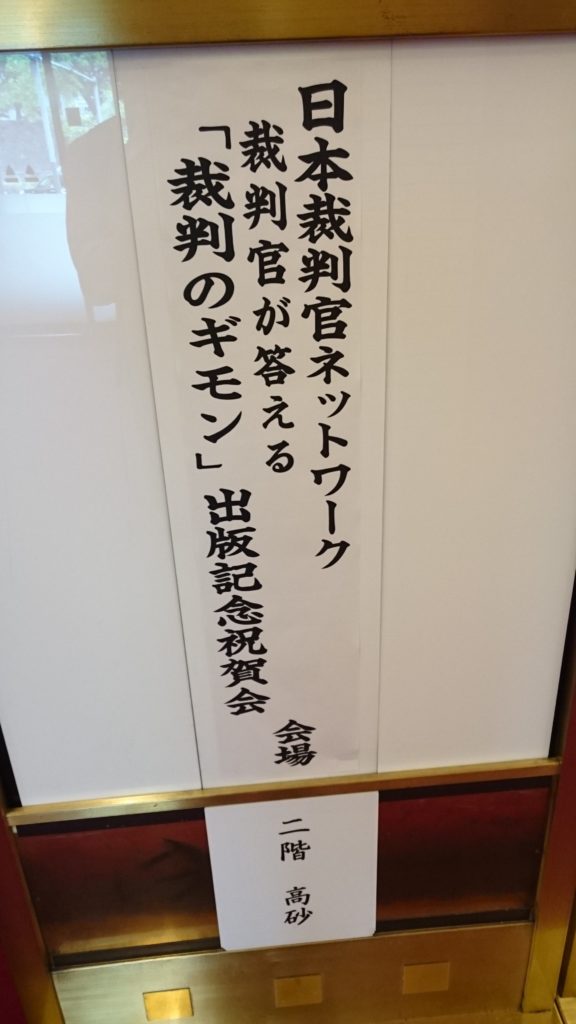 日本裁判官ネットワーク
裁判官が答える
「裁判のギモン」出版記念祝賀会
会場
二階 高砂